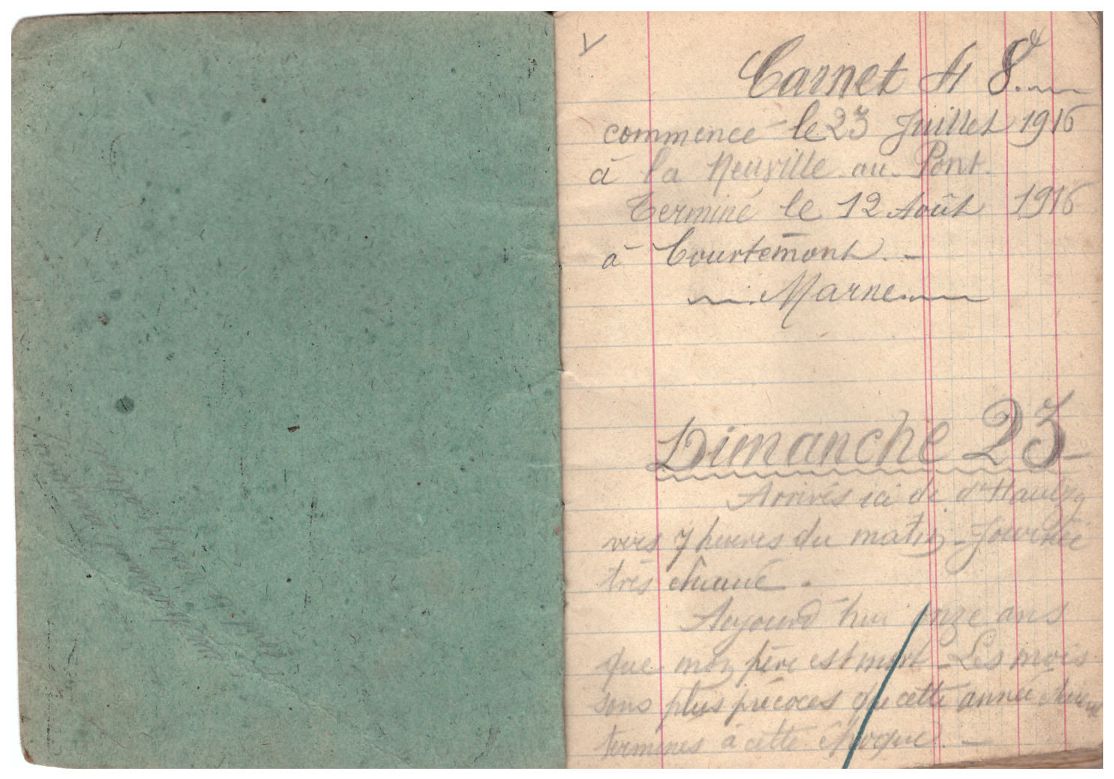 Carnet N 8.
commencé le 23 Juillet 1916
à la Neuville au Pont.
Terminé le 12 Août 1916
à Courtémont. -
Marne
Dimanche 23
Arrivés ici de d'Hauzy
vers 7 heures du matin - Journée
très chaude.
Aujourd'hui onze ans
que mon père est mort - Les
sons plus précoces que cette année
termines à cette époque. -